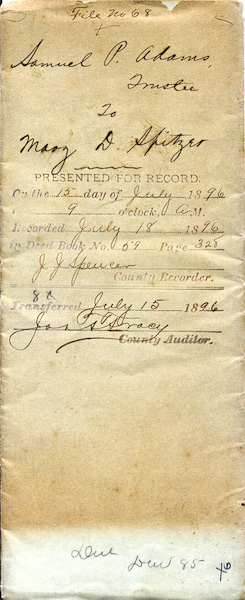 File No 68
Samuel P. Adams,
Trustee
To
Mary D. Spitzer
PRESENTED FOR RECORD.
On the 15 day of July 1896
9 o'clock, A.M.
Recorded July 18 1896
in Deed Book No. 59 Page 328
J J Spencer
County Recorder.
Transferred July 15 1896
Jas Tracy
County Auditor.
Due